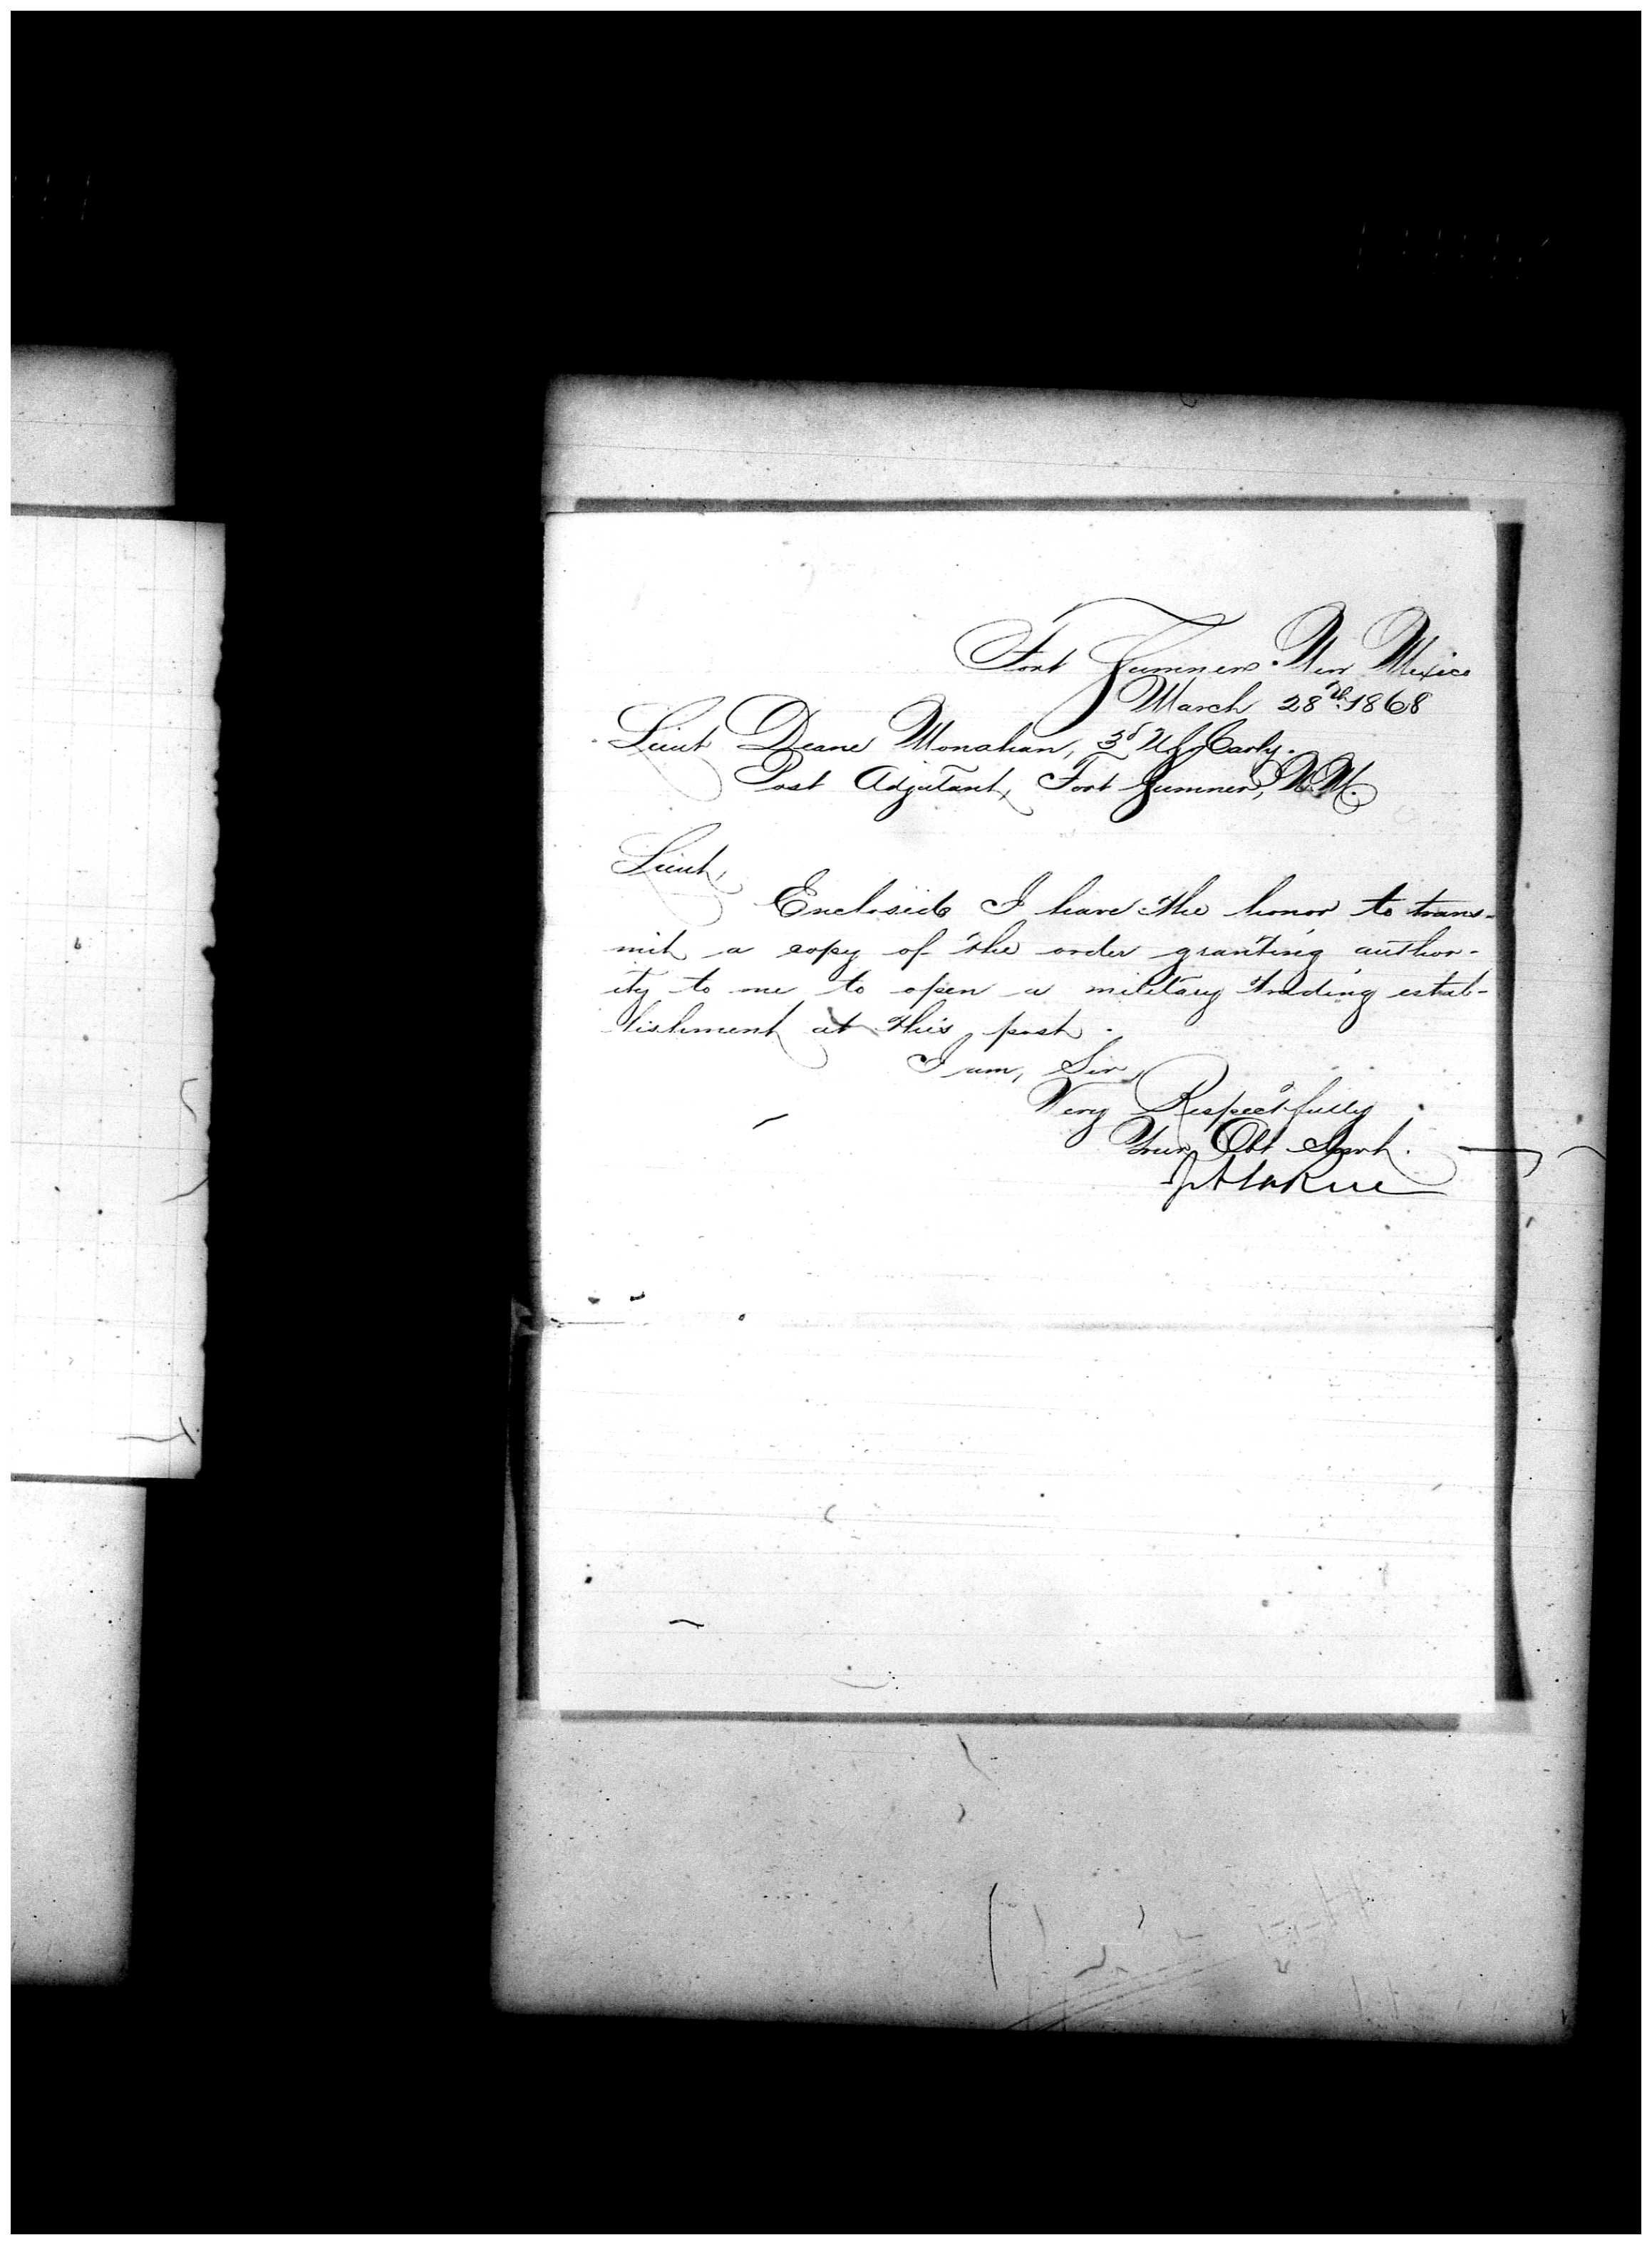 Fort Sumner New Mexico
March 28th 1868
Lieut Deane Monahan, 3d U.S. Cavly.
Post Adjutant, Fort Sumner, N.M.
Lieut,
Enclosed I have the honor to trans-
mit a copy of the order granting author-
ity to me to open a military trading estab-
lishment at this post.
I am, Sir,
Very Respectfully
Your Obt Servt.
J A LaRue